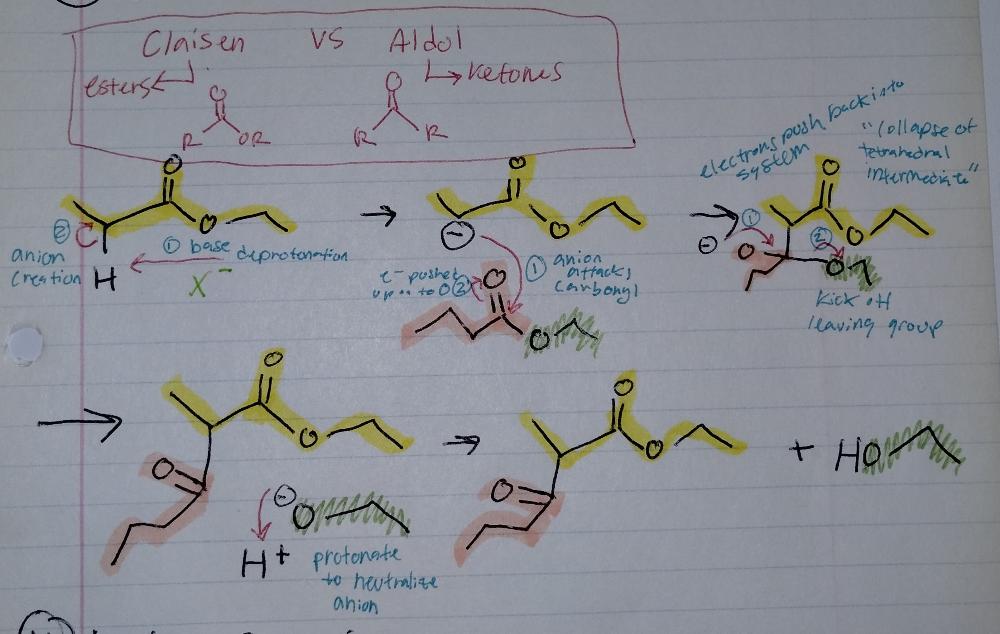 Claisen VS Aldol
esters ketones
O O
R OR R R
electrons push back into
system
"Collapse of
tetrahedral
intermediate"
O O O
② ① base deprotonation O
anion
creation H X⁻
⊖ O
e⁻ pushed
up to O ②
O
① anion
attacks
carbonyl
O
① ② O
⊖ O O
kick off
leaving group
O O
O O
O O
⊖
O
+ HO
H+ protonate
to neutralize
anion